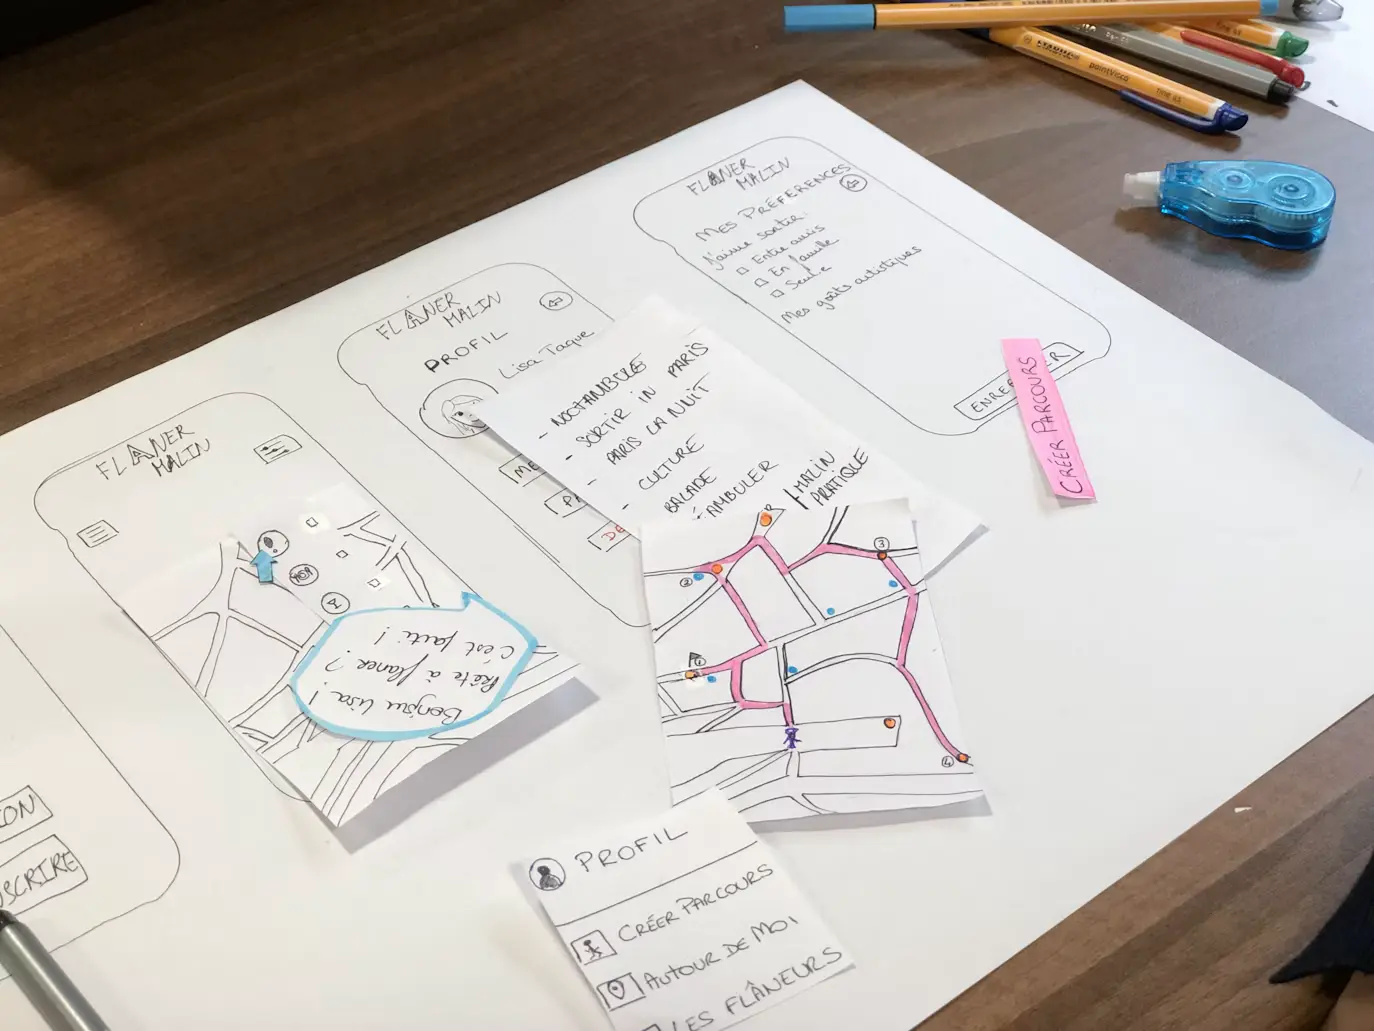 FLÂNER
MALIN
MES PRÉFERENCES
J'aime sortir :
Entre amis
En famille
Seule
Mes goûts artistiques
CRÉER PARCOURS
FLÂNER
MALIN
PROFIL
Lisa Taque
ME
PA
DE
- NOCTAMBULE
- SORTIR IN PARIS
- PARIS LA NUIT
- CULTURE
BALADE
AMBULER
MALIN
PRATIQUE
FLÂNER
MALIN
Bonjour Lisa !
Prête à flâner ?
C'est parti !
1
2
3
4
PROFIL
CRÉER PARCOURS
AUTOUR DE MOI
LES FLÂNEURS
ION
SCRIRE
STABILO
point Visco